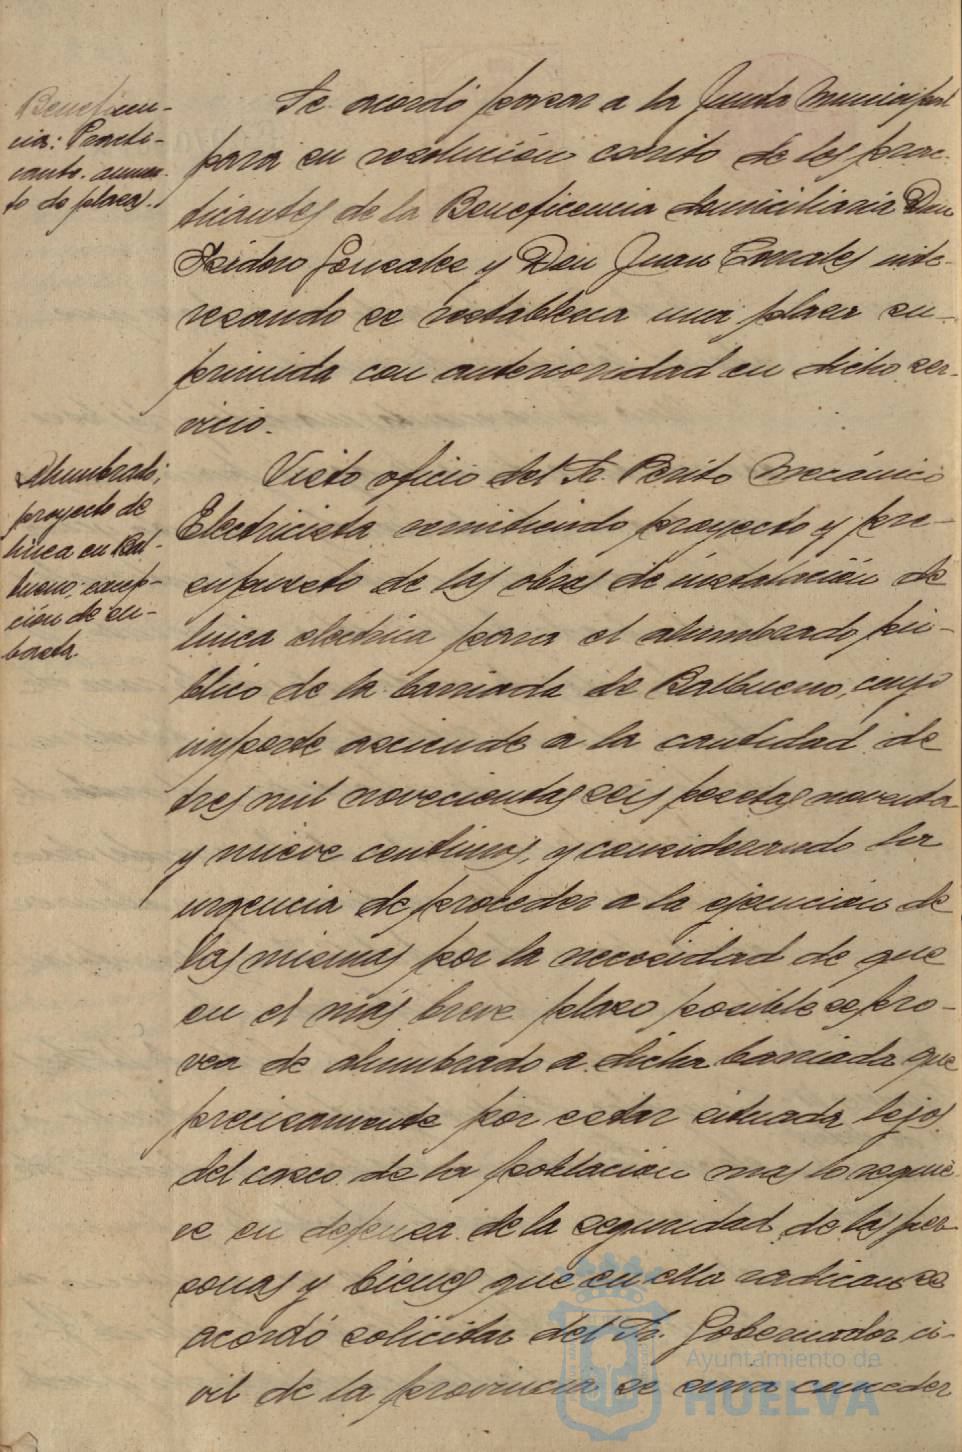 Beneficen-
cia: Practi-
cante. aumen-
to de plaza.
Se acordó pasar a la Junta Municipal
para su resolución escrito de los prac-
ticantes de la Beneficencia domiciliaria Don
Isidoro González y Don Juan Corrales inte-
resando se restablezca una plaza su-
primida con anterioridad en dicho ser-
vicio.
Alumbrado;
proyecto de
línea en Bal-
bueno; excep-
ción de su-
basta.
Visto oficio del Sr. Perito Mecánico
Electricista remitiendo proyecto y pre-
supuesto de las obras de instalación de
línea electrica para el alumbrado pú-
blico de la barriada de Balbueno, cuyo
importe asciende a la cantidad de
tres mil novecientas seis pesetas noventa
y nueve centimos, y considerando la
urgencia de proceder a la ejecución de
las mismas por la necesidad de que
en el más breve plazo posible se pro-
vea de alumbrado a dicha barriada que
precisamente por estar situada lejos
del casco de la población mas lo requie-
re en defensa de la seguridad de las per-
sonas y bienes que en ella radican se
acordó solicitar del Sr. Gobernador ci-
vil de la provincia se sirva conceder
Ayuntamiento de
HUELVA